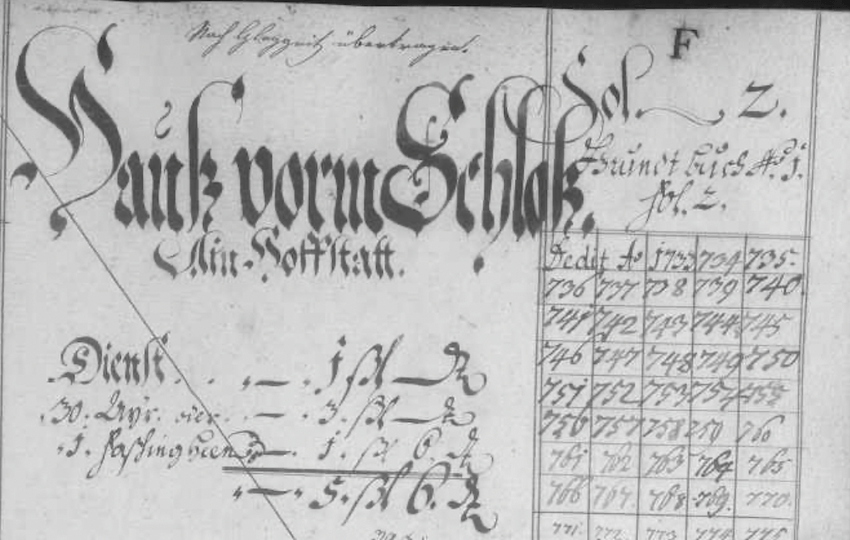 Nach Gloggnitz übertragen.
F
Fol. 2.
Hauß vorm Schloß.
Grundtbuch No. 1.
fol. 2.
Ain Hoffstatt.
Dedit Ao 1733 734 735.
736 737 738 739 740
741 742 743 744 745
Dienst . . " — . 1 ßl — ₰
746 747 748 749 750
751 752 753 754 755
30. Ayr. oder . — . 3. ßl — ₰
756 757 758 759 760
1. Faßinghenn — . 1. ßl 6. ₰
761 762 763 764 765
" — " 5. ßl 6. ₰
766 767. 768. 769. 770.
771. 772. 773 774 775